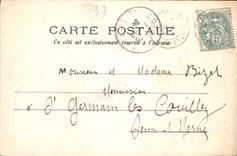 37
CARTE POSTALE
Ce côté est exclusivement réservé à l'adresse
Monsieur et Madame Bizet
Menuisier
à St Germain les Couilly
Seine et Marne